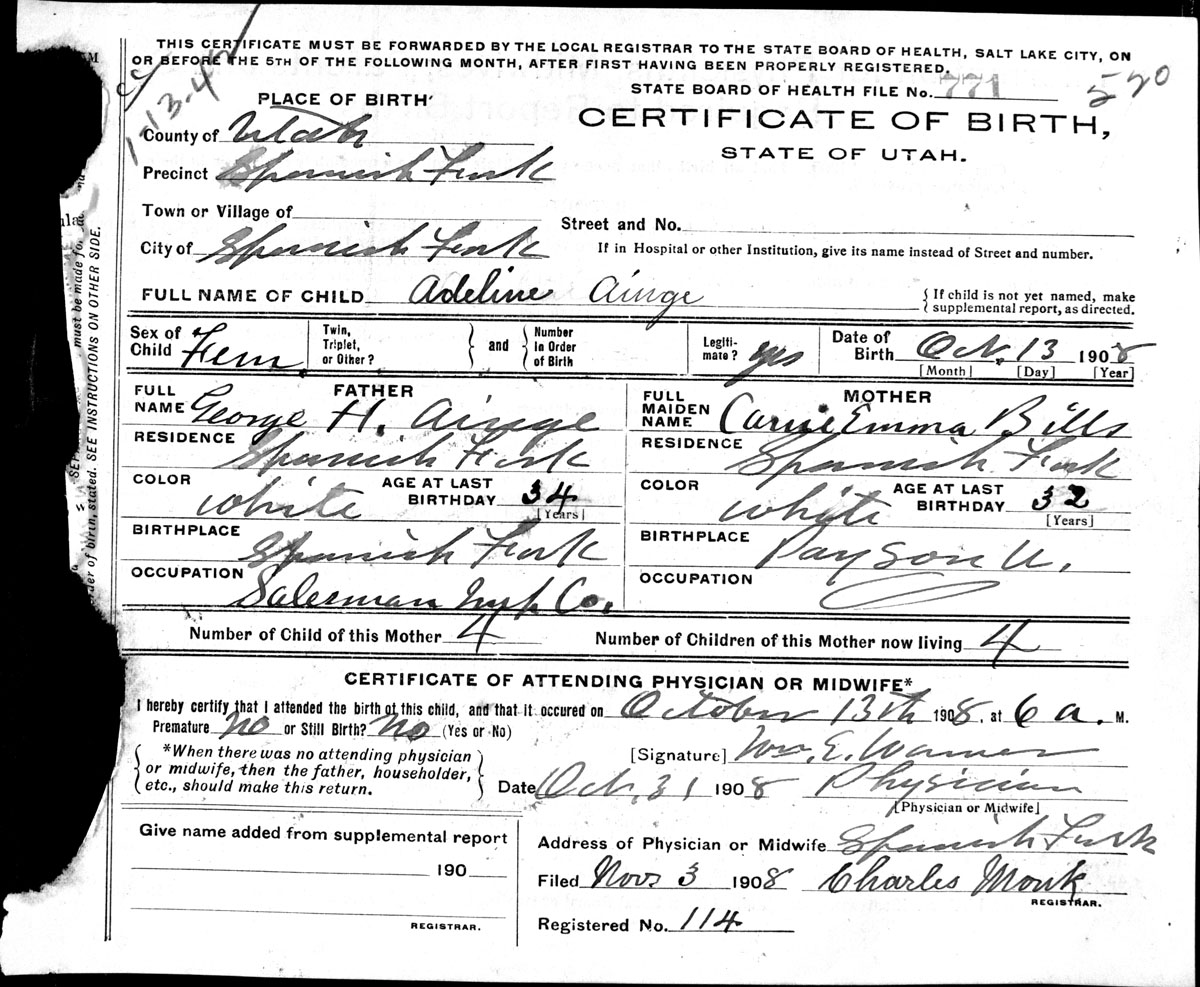 THIS CERTIFICATE MUST BE FORWARDED BY THE LOCAL REGISTRAR TO THE STATE BOARD OF HEALTH, SALT LAKE CITY, ON
OR BEFORE THE 5TH OF THE FOLLOWING MONTH, AFTER FIRST HAVING BEEN PROPERLY REGISTERED.
STATE BOARD OF HEALTH FILE No. 771
520
1-13-42
PLACE OF BIRTH
CERTIFICATE OF BIRTH,
STATE OF UTAH.
County of Utah
Precinct Spanish Fork
Town or Village of
Street and No.
City of Spanish Fork
If in Hospital or other Institution, give its name instead of Street and number.
FULL NAME OF CHILD Adeline Ainge
{ If child is not yet named, make
supplemental report, as directed.
must be made for
order of birth, stated. SEE INSTRUCTIONS ON OTHER SIDE.
Sex of Child Fem.
Twin, Triplet, or Other?
and
Number In Order of Birth
Legiti- mate? yes
Date of Birth Oct. 13 1908
[Month] [Day] [Year]
FATHER
FULL NAME George H. Ainge
RESIDENCE Spanish Fork
COLOR white AGE AT LAST BIRTHDAY 34
[Years]
BIRTHPLACE Spanish Fork
OCCUPATION Salesman Co.
MOTHER
FULL MAIDEN NAME Carrie Emma Bills
RESIDENCE Spanish Fork
COLOR white AGE AT LAST BIRTHDAY 32
[Years]
BIRTHPLACE Payson U.
OCCUPATION
Number of Child of this Mother 4 Number of Children of this Mother now living 4
CERTIFICATE OF ATTENDING PHYSICIAN OR MIDWIFE*
I hereby certify that I attended the birth of this child, and that it occured on October 13th 1908, at 6 a. M.
Premature? no or Still Birth? no (Yes or No)
*When there was no attending physician
or midwife, then the father, householder,
etc., should make this return.
[Signature] Wm. E. Warner
Date Oct. 31 1908 Physician
[Physician or Midwife]
Give name added from supplemental report
190
REGISTRAR.
Address of Physician or Midwife Spanish Fork
Filed Nov 3 1908 Charles Monk
REGISTRAR.
Registered No. 114